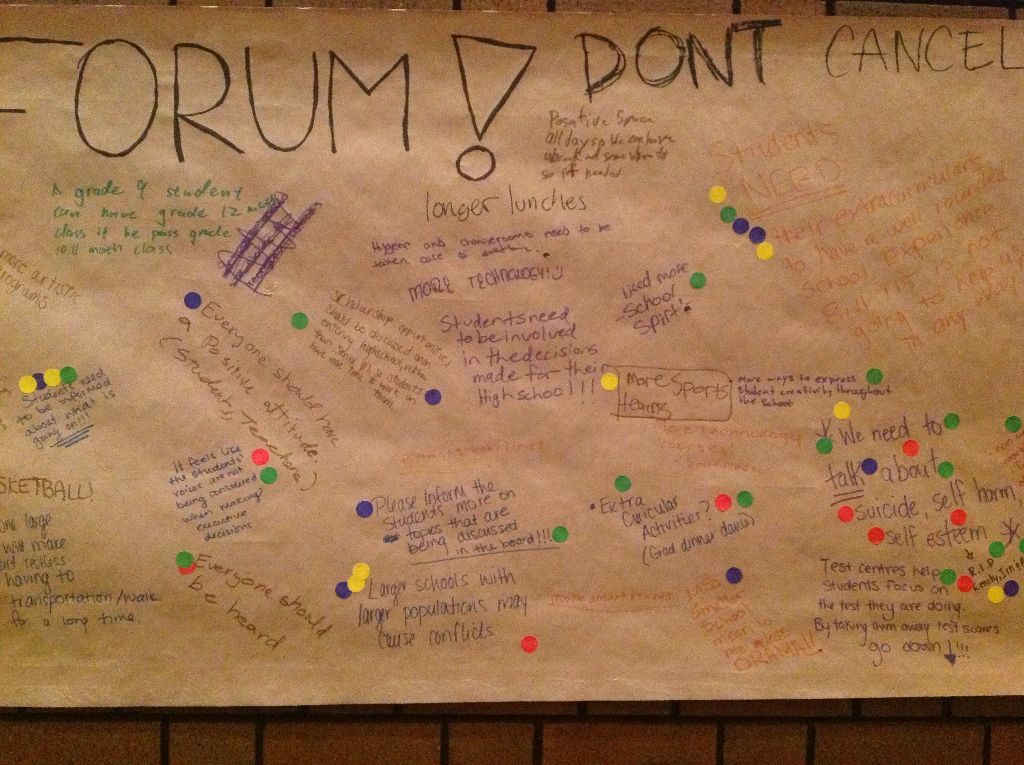 FORUM!
DONT CANCEL
Positive Space
all day so we can have
so if needed
A grade 9 student
can have grade 12 math
class if he pass grade
math class
longer lunches
Hygene and need to be
taken care of
MORE TECHNOLOGY!
Students
NEED
their extracurriculars
to have a well rounded
School Experience
Bill is not
going to help
any
more artistic
programs
Need more
School
Spirit!
Students need
to be involved
in the decisions
made for their
High school!!!
Scholarship opportunities
should be discussed upon
entering highschool, rather
than being in so students
have more time to work on
them
Everyone should have
a Positive attitude.
(Students, Teachers)
Students need
to be informed
about what is
going on!!
More Sports
teams
More ways to express
Student creativity throughout
the School
more technology
We need to
talk about
suicide, self harm,
self esteem
R.I.P
It feels like
the students'
voices are not
being considered
when making
executive
decisions
SKETBALL!
one large
will make
restless
having to
transportation/walk
for a long time
Please Inform the
students more on
topics that are
being discussed
in the board!!!
Extra
Curicular
Activities?
(Grad dinner dance)
Everyone should
be heard
Larger schools with
larger populations may
cause conflicts
School
mean
DRAMA!!
Test centres help
Students focus on
the test they are doing.
By taking them away test scores
go down!!!